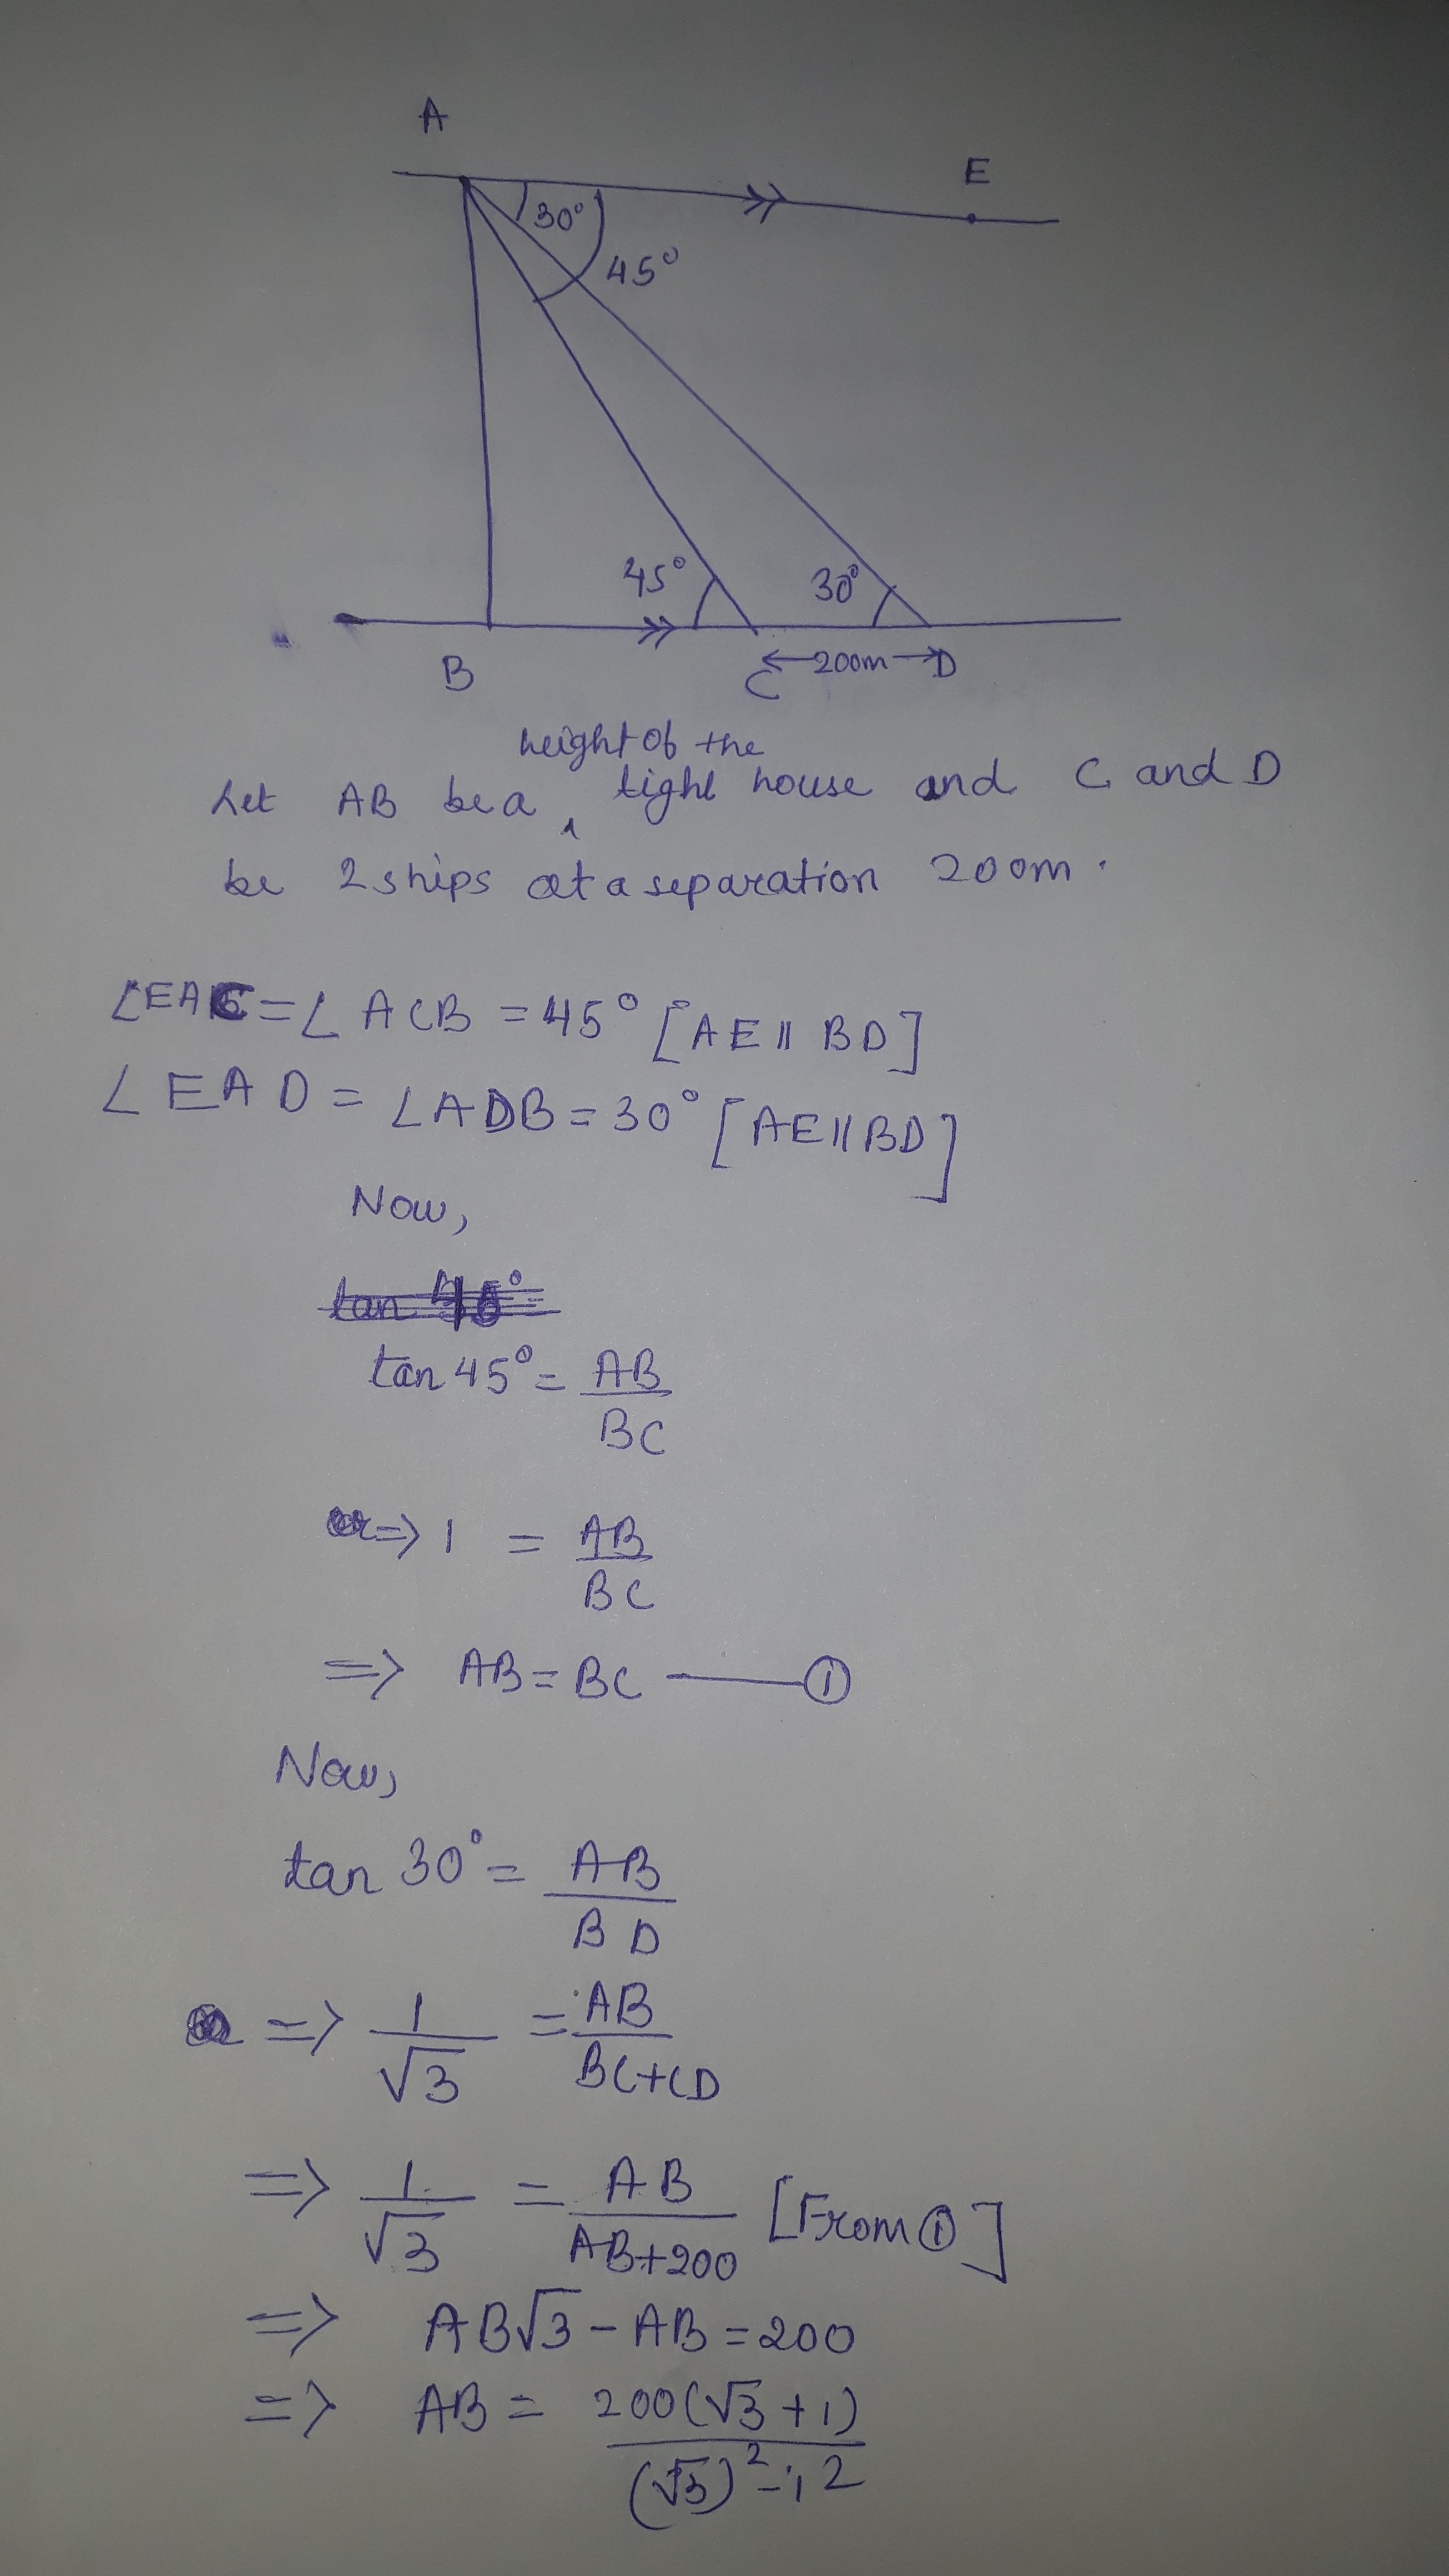 A
E
30°
45°
45°
30°
B
C
200m
D
height of the
Let AB be a light house and C and D
be 2 ships at a separation 200m.
∠EAC = ∠ACB = 45° [AE || BD]
∠EAD = ∠ADB = 30° [AE || BD]
Now,
tan 45° = AB/BC
⇒ 1 = AB/BC
⇒ AB = BC —— ①
Now,
tan 30° = AB/BD
⇒ 1/√3 = AB/BC+CD
⇒ 1/√3 = AB/AB+200 [From ①]
⇒ AB√3 - AB = 200
⇒ AB = 200(√3 + 1)/(√3)² - 1²